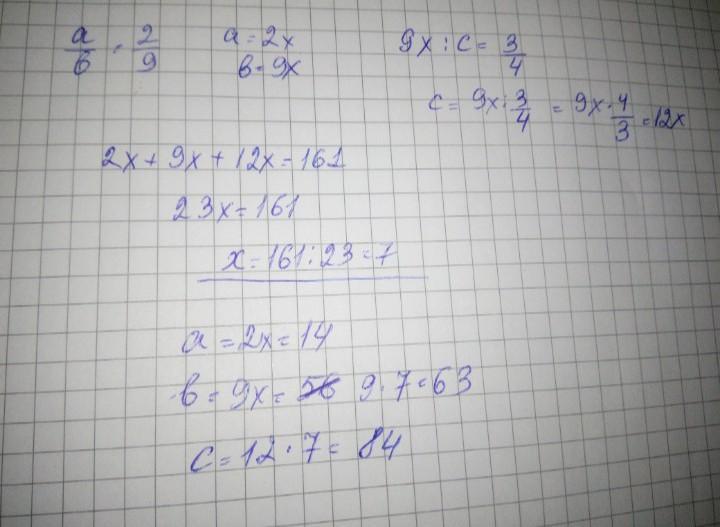 a/b = 2/9
a = 2x
b = 9x
9x : c = 3/4
c = 9x : 3/4 = 9x · 4/3 = 12x
2x + 9x + 12x = 161
23x = 161
x = 161 : 23 = 7
a = 2x = 14
b = 9x = 56 9 · 7 = 63
c = 12 · 7 = 84